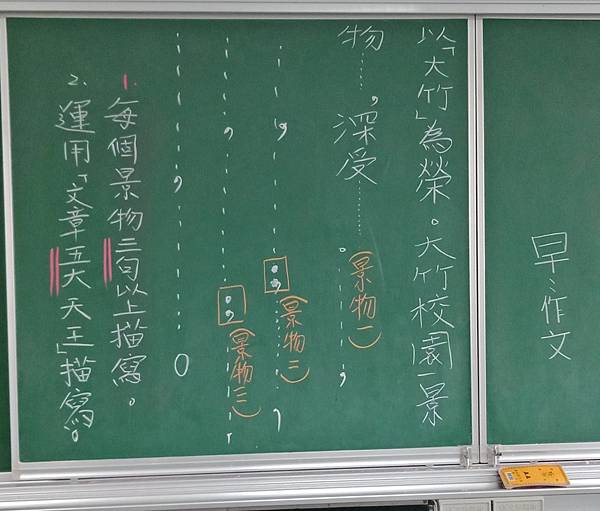 早、作文
以「大竹」為榮。大竹校園一景
物……，深受……。（景物一），
……，……；（景物二），
……，……；（景物三），
……，……。
1. 每個景物三句以上描寫。
2. 運用「文章五大天王」描寫。